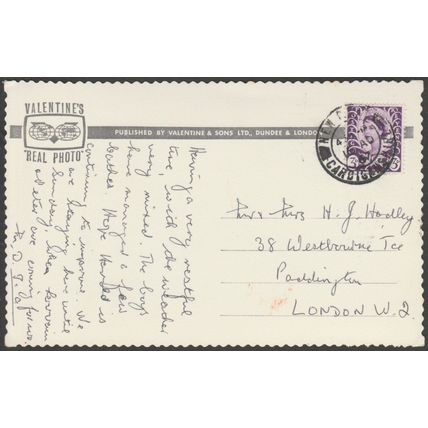 VALENTINE'S
"REAL PHOTO"
PUBLISHED BY VALENTINE & SONS LTD., DUNDEE & LONDON
NEW
CARDIGANSHIRE
3D
Having a very restful
time, with the weather
very mixed. The boys
have managed a few
bathes. Hope Harold is
continuing to improve. We
are staying here until
Sunday, when
are coming for us.
Mr & Mrs H. J. Hadley
38 Westbourne Tce
Paddington
LONDON W.2